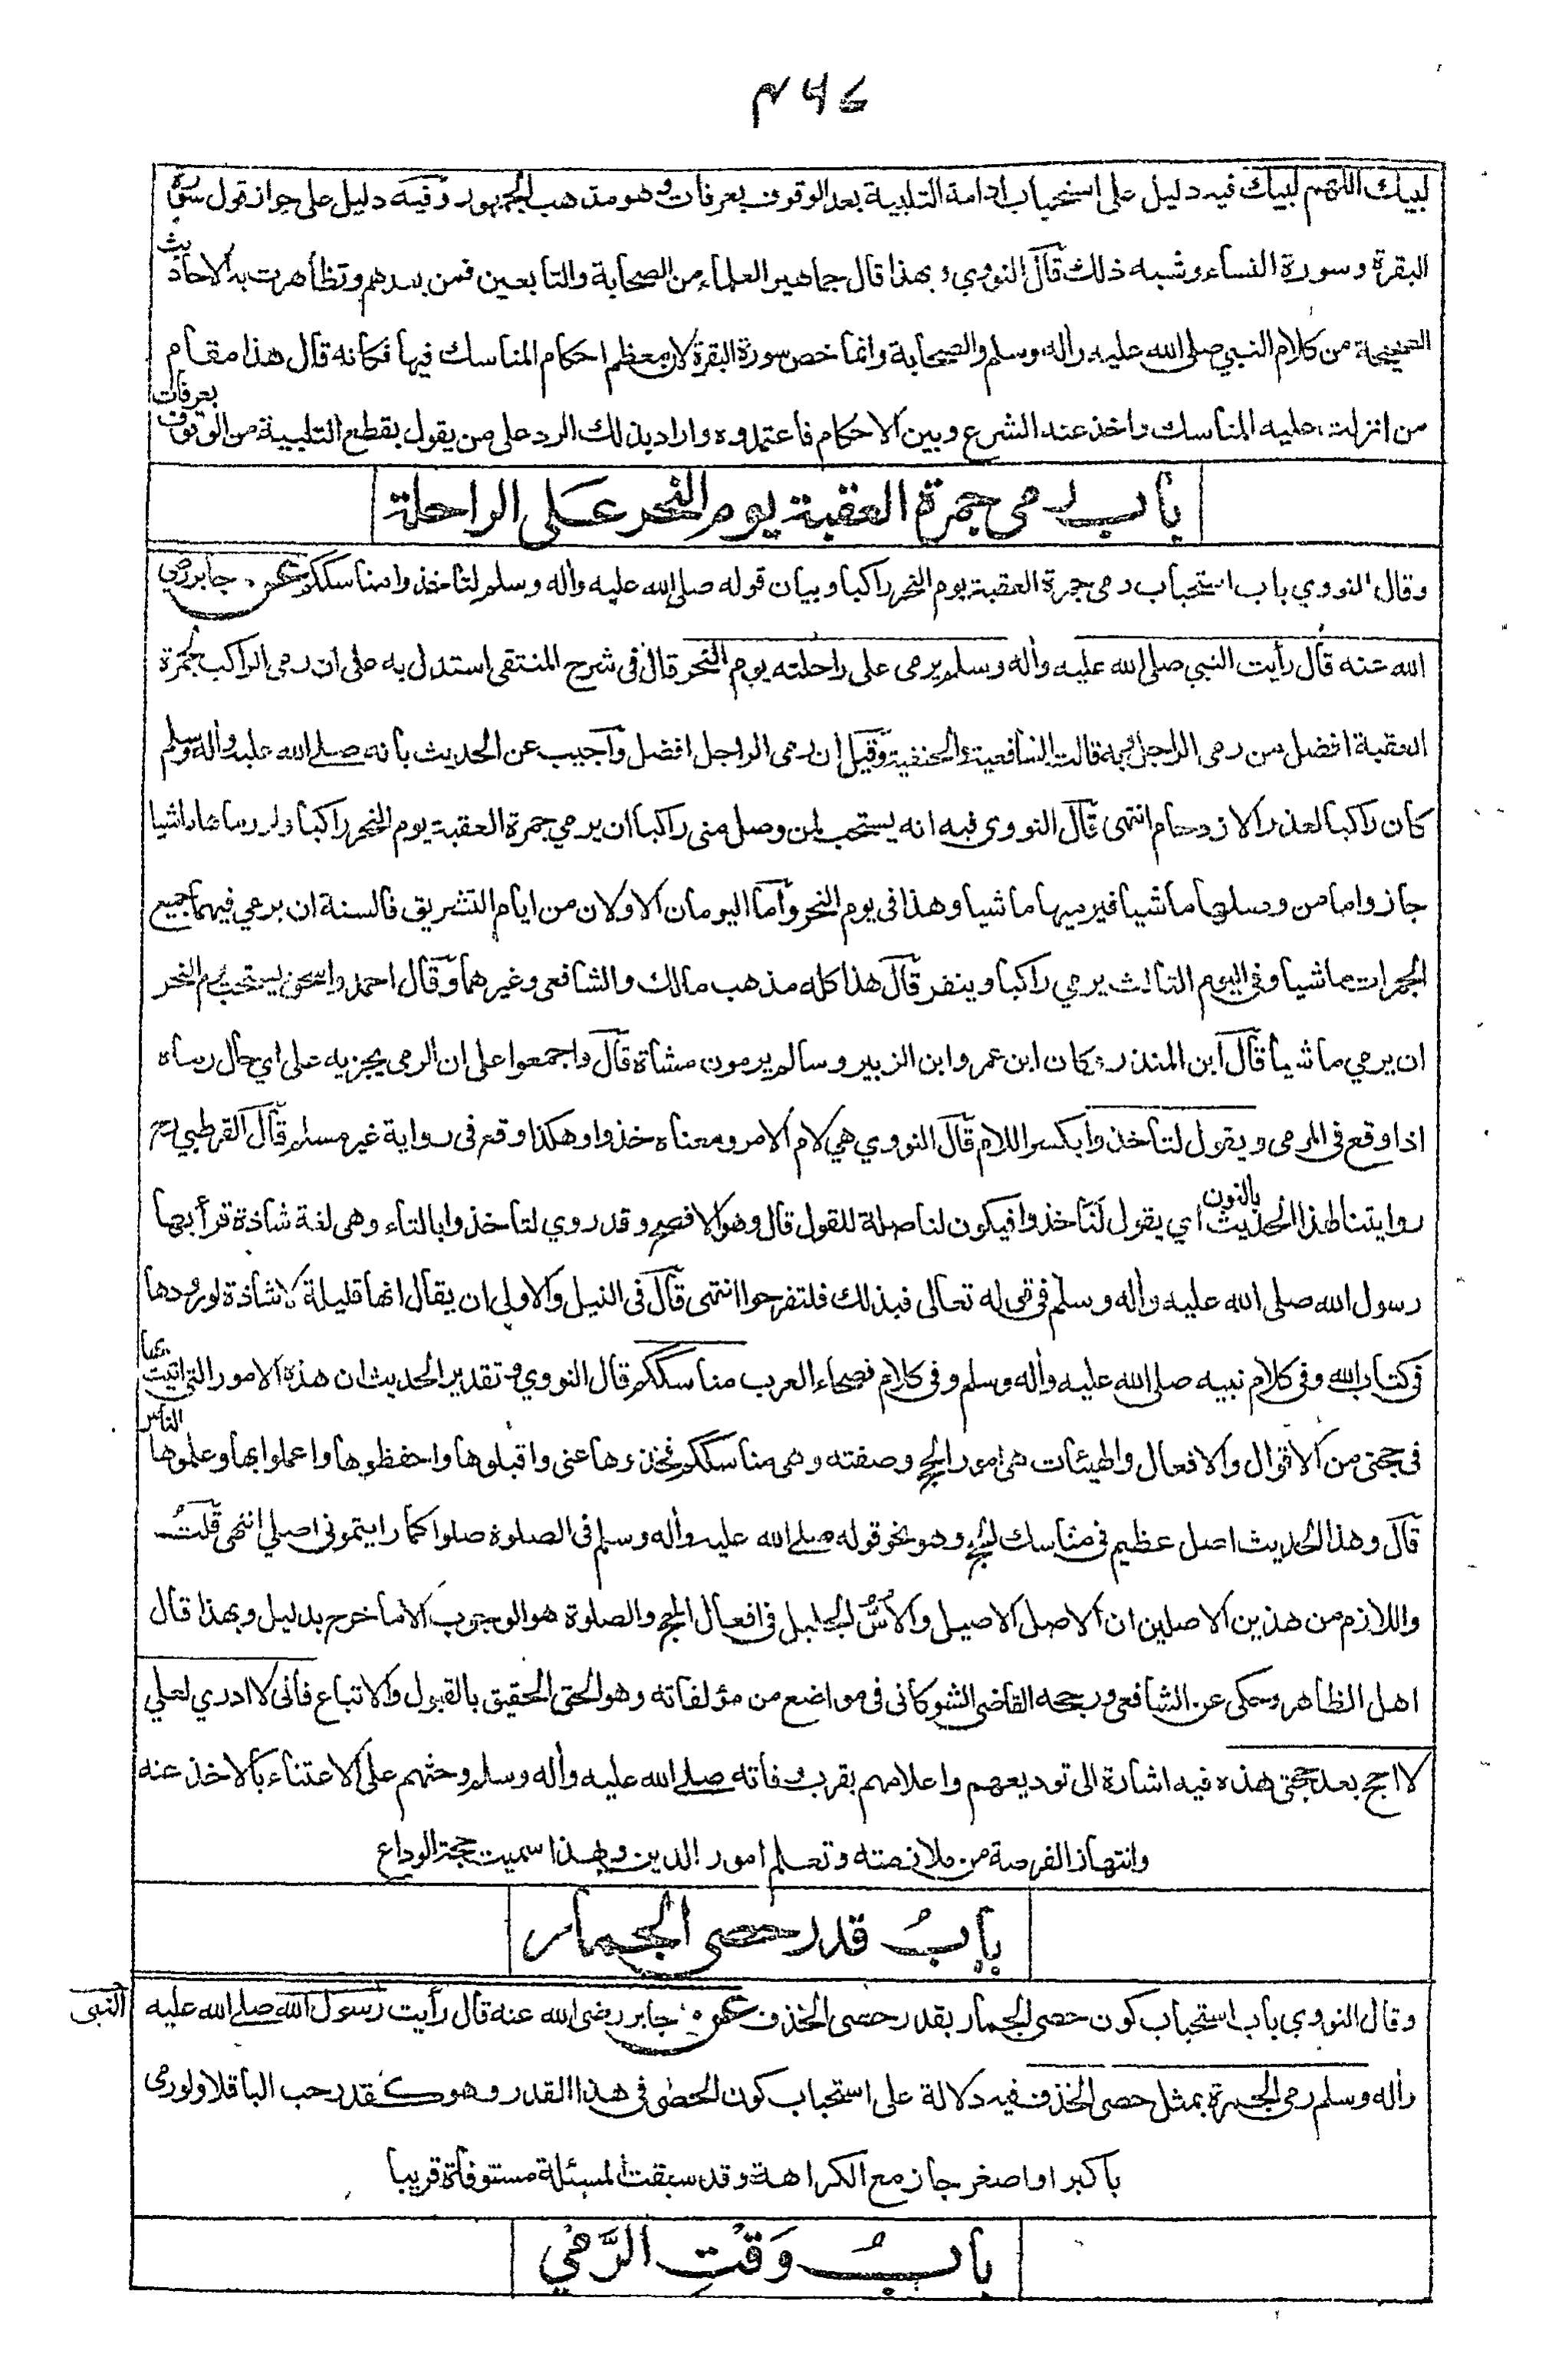 ۴۶۷
لبيك اللهم لبيك فيه دليل على استحباب ادامة التلبية بعد الوقوف بعرفات وهو مذهب الجمهور وفيه دليل على جواز قول سورة
البقرة وسورة النساء وشبه ذلك قال النووي وبهذا قال جماهير العلماء من الصحابة والتابعين فمن بعدهم وتظاهرت به الاحاديث
الصحيحة من كلام النبي صلى الله عليه واله وسلم والصحابة وانما خص سورة البقرة لان معظم احكام المناسك فيها فكانه قال هذا مقام
من انزلت عليه المناسك واخذ عنه الشرع وبين الاحكام فاعتمدوه واراد بذلك الرد على من يقول بقطع التلبية من الوقوف بعرفات
باب رمي جمرة العقبة يوم النحر على الراحلة
وقال النووي باب استحباب رمي جمرة العقبة يوم النحر راكبا وبيان قوله صلى الله عليه واله وسلم لتاخذوا مناسككم عن جابر رضي
الله عنه قال رأيت النبي صلى الله عليه واله وسلم يرمى على راحلته يوم النحر قال في شرح المنتقى استدل به على ان رمى الراكب لجمرة
العقبة افضل من رمى الراجل وبه قالت الشافعية والحنفية وقيل ان رمى الراجل افضل واجيب عن الحديث بأنه صلى الله عليه واله وسلم
كان راكبا لعذر الازدحام انتهى قال النووي فيه انه يستحب لمن وصل منى راكبا ان يرمي جمرة العقبة يوم النحر راكبا ولو رماها ماشيا
جاز واما من وصلها ماشيا فيرميها ماشيا وهذا في يوم النحر وأما اليومان الاولان من ايام التشريق فالسنة ان يرمي فيهما جميع
الجمرات ماشيا وفي اليوم الثالث يرمي راكبا وينفر قال هذا كله مذهب مالك والشافعي وغيرهما وقال احمد واسحق يستحب يوم النحر
ان يرمي ماشيا قال ابن المنذر وكان ابن عمر وابن الزبير وسالم يرمون مشاة قال واجمعوا على ان الرمى يجزيه على اي حال رماه
اذا وقع في المرمى ويقول لتأخذوا بكسر اللام قال النووي هي لام الامر ومعناه خذوا وهكذا وقع في رواية غير مسلم قال القرطبي
روايتنا لهذا الحديث بالنون اي يقول لَنَا خذوا فيكون لنا صلة للقول قال وهو الافصح وقد روي لتاخذوا بالتاء وهى لغة شاذة قرأ بها
رسول الله صلى الله عليه واله وسلم في قوله تعالى فبذلك فلتفرحوا انتهى قال في النيل والاولى ان يقال انها قليلة لا شاذة لورودها
في كتاب الله وفي كلام نبيه صلى الله عليه واله وسلم وفي كلام فصحاء العرب مناسككم قال النووي وتقدير الحديث ان هذه الامور التي اتيت بها
في حجتي من الاقوال والافعال والهيئات هى امور الحج وصفته وهى مناسككم فخذوها عنى واقبلوها واحفظوها واعملوا بها وعلموها الناس
قال وهذا الحديث اصل عظيم في مناسك الحج وهو نحو قوله صلى الله عليه واله وسلم في الصلوة صلوا كما رايتموني اصلي انتهى قلت
واللازم من هذين الاصلين ان الاصل الاصيل والأسّ الجليل في افعال الحج والصلوة هو الوجوب الا ما خرج بدليل وبهذا قال
اهل الظاهر وحكى عن الشافعي ورجحه القاضي الشوكاني في مواضع من مؤلفاته وهو الحق الحقيق بالقبول والاتباع فانى لا ادري لعلي
لا احج بعد حجتي هذه فيه اشارة الى توديعهم واعلامهم بقرب وفاته صلى الله عليه واله وسلم وحثهم على الاعتناء بالاخذ عنه
وانتهاز الفرصة من ملازمته وتعلم امور الدين وبهذا سميت حجة الوداع
بابُ قدر حصى الجمار
وقال النووي باب استحباب كون حصى الجمار بقدر حصى الخذف عن جابر رضى الله عنه قال رأيت رسول الله صلى الله عليه
النبي
واله وسلم رمى الجمرة بمثل حصى الخذف فيه دلالة على استحباب كون الحصى في هذا القدر وهو كقدر حب الباقلا ولو رمى
باكبر او اصغر جاز مع الكراهة وقد سبقت المسئلة مستوفاة قريبا
بابُ وَقْتِ الرَّمْي